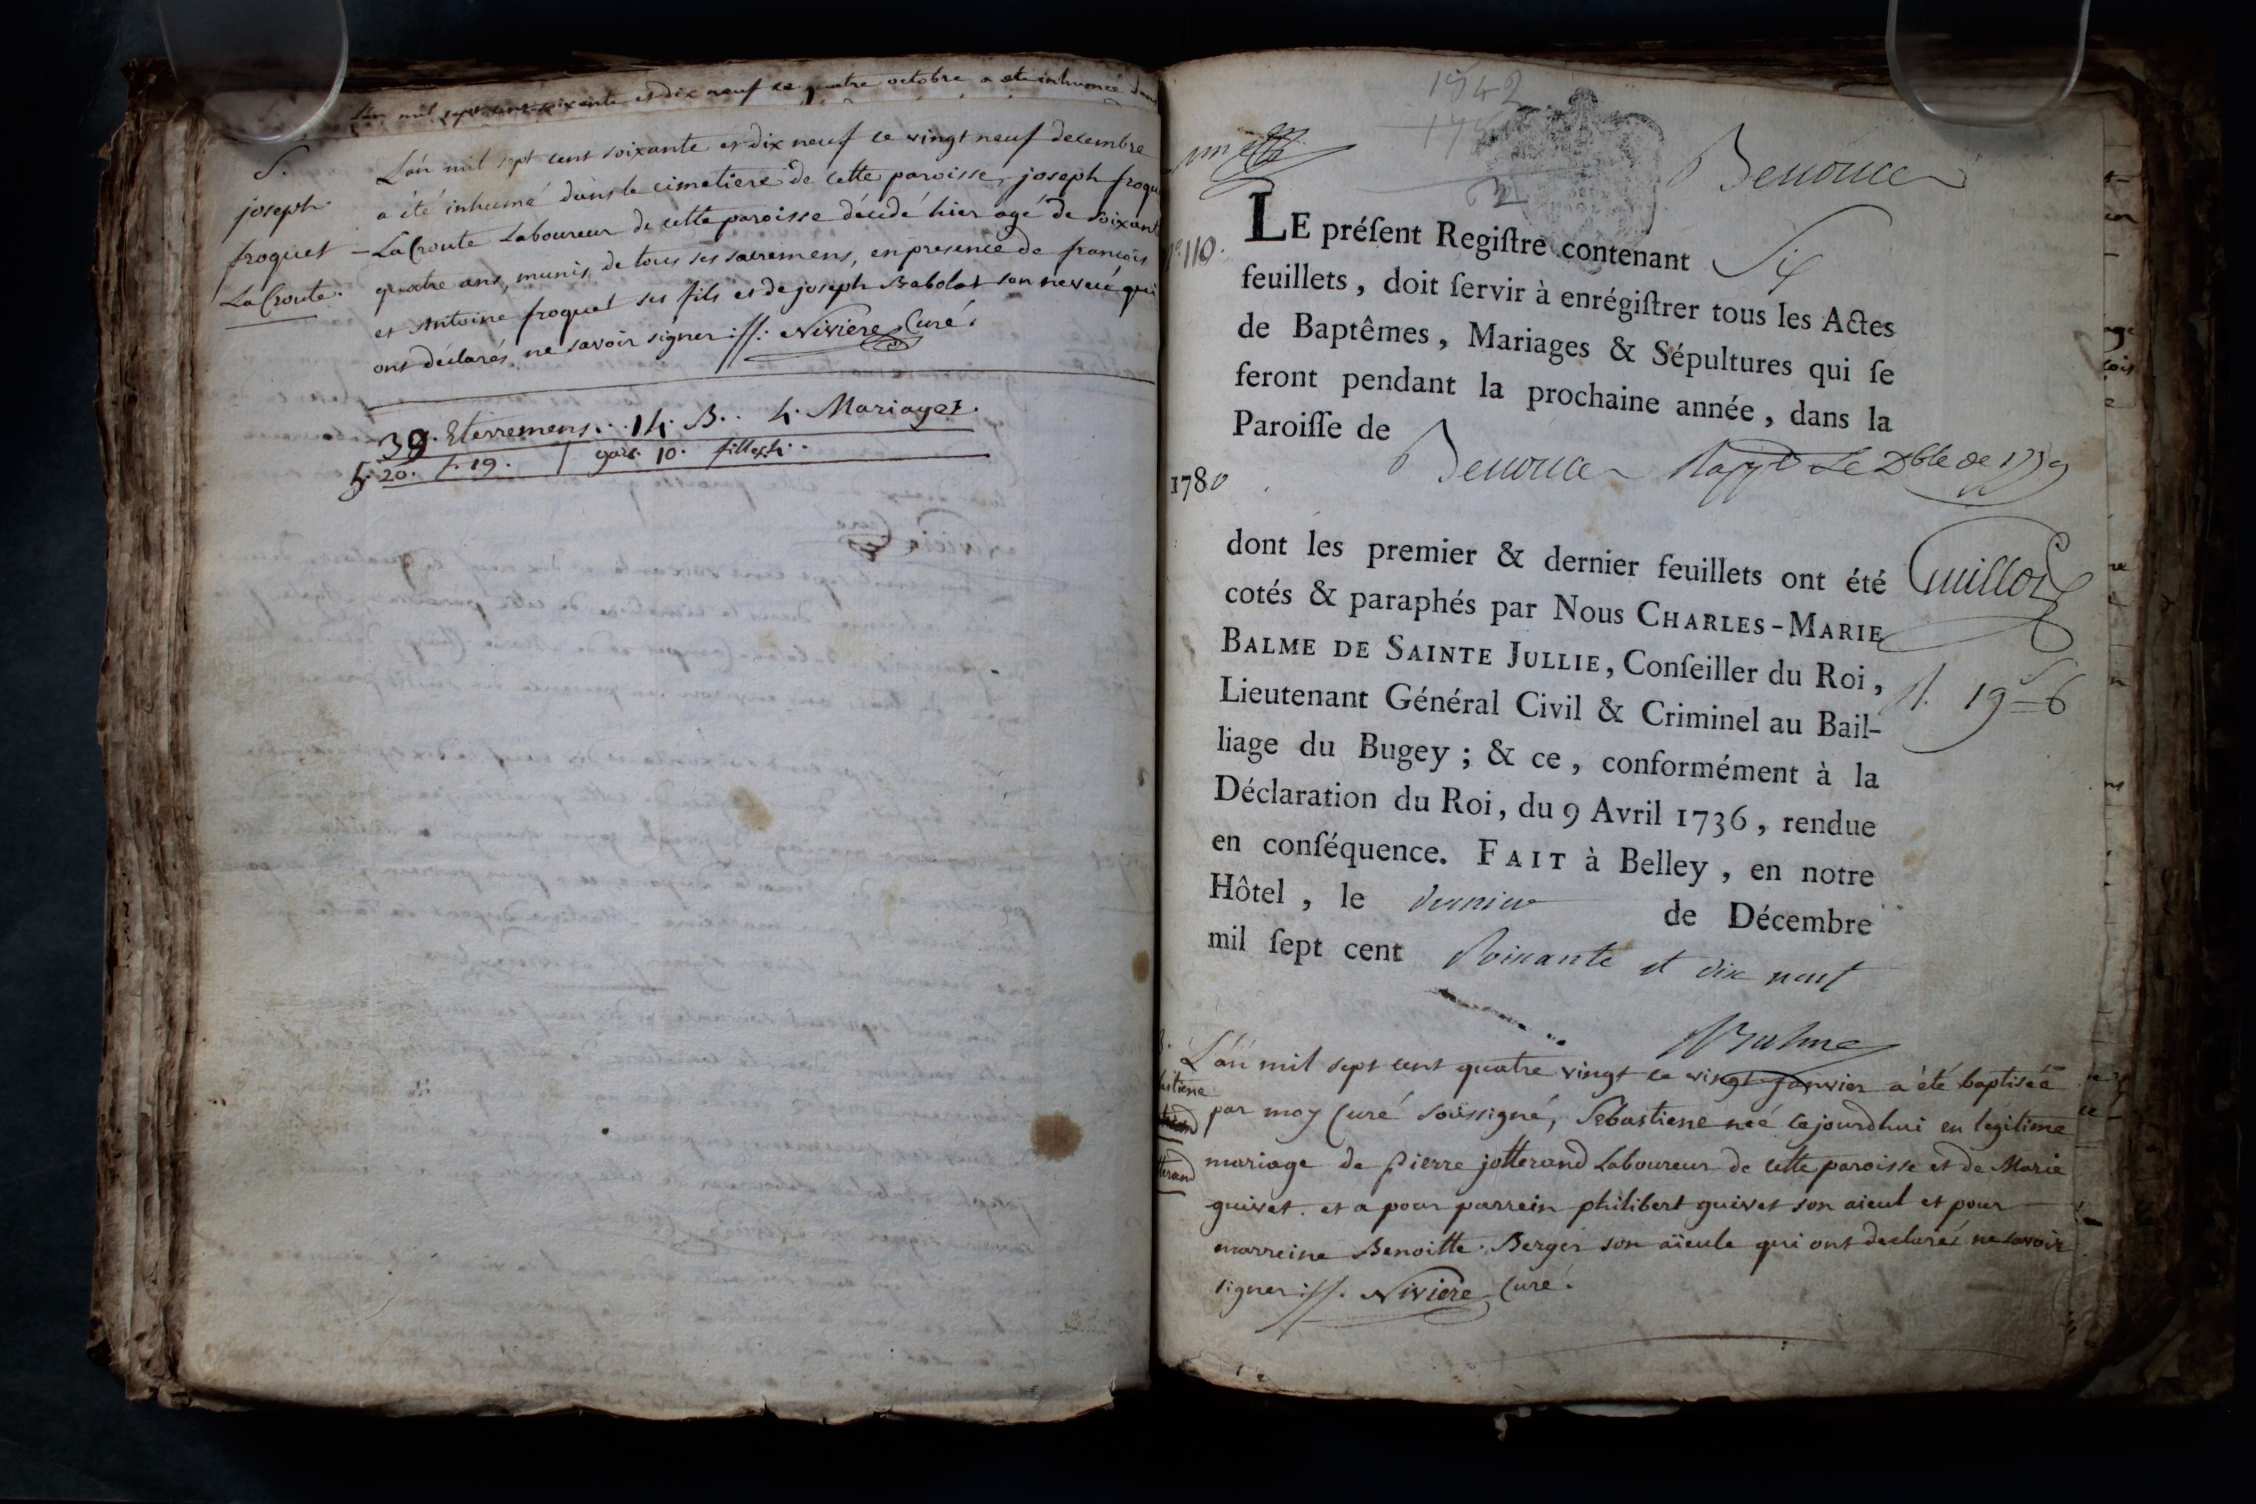 L'an mil sept cent soixante et dix neuf le quatre octobre a eté inhumée dans
S.
joseph
froquet
La Croute.
L'an mil sept cent soixante et dix neuf le vingt neuf decembre
a été inhumé dans le cimetiere de cette paroisse, joseph froqu
La Croute Laboureur de cette paroisse décédé hier agé de soixant
quatre ans, munis de tous ses sacremens, en presence de francois
et Antoine froquet ses fils et de joseph Babolat son neveu qui
ont déclarés ne savoir signer ://: Niviere Curé.
39. Eterremens... 14. B.. 4. Mariages.
20. f. 19. garc. 10. filles 4.
1742
2
Benonce
n.° 110.
LE préſent Regiſtre contenant Six
feuillets, doit ſervir à enrégiſtrer tous les Actes
de Baptêmes, Mariages & Sépultures qui ſe
feront pendant la prochaine année, dans la
Paroiſſe de
Benonce Le Xble de 1779
1780
dont les premier & dernier feuillets ont été
Guillot
cotés & paraphés par Nous CHARLES-MARIE
BALME DE SAINTE JULLIE, Conſeiller du Roi,
19 s 6
Lieutenant Général Civil & Criminel au Bail-
liage du Bugey; & ce, conformément à la
Déclaration du Roi, du 9 Avril 1736, rendue
en conſéquence. FAIT à Belley, en notre
Hôtel, le dernier de Décembre
mil ſept cent Soixante et dix neuf
Balme
L'an mil sept cent quatre vingt le vingt janvier a été baptisée
par moy Curé soussigné, Sebastiene neé cejourdhui en légitime
mariage de Pierre jotterand Laboureur de cette paroisse et de Marie
guivet. et a pour parrein philibert guivet son aieul et pour
marreine Benoitte Berger son aïeule qui ont declarés ne savoir
signer ://. Niviere Curé.